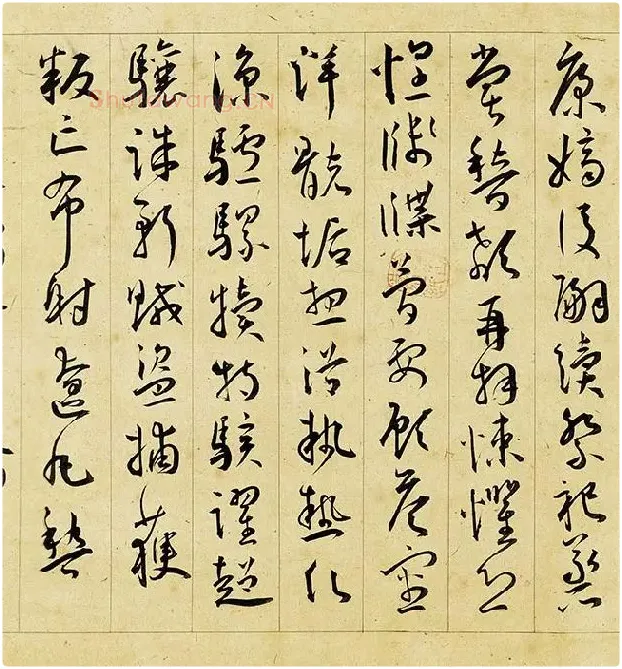 康嫡後嗣續祭祀蒸
嘗稽顙再拜悚懼恐
惶牋牒簡要顧答審
詳骸垢想浴執熱願
涼驢騾犢特駭躍超
驤誅斬賊盜捕獲
叛亡布射遼丸嵇
Shufawang.CN